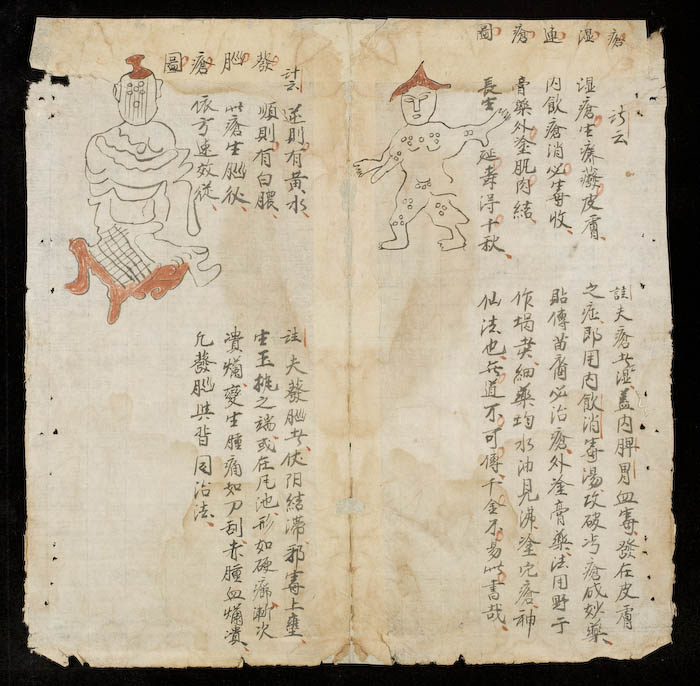 瘡湿連瘡圖
詩云
湿瘡生療發皮膚
内飲瘡消必毒收
膏藥外塗肌肉結
長生延寿得千秋
註夫瘡者湿盖内脾胃血毒發在皮膚
之症即用内飲消毒湯攻破此瘡成妙藥
貼傅苗裔必治瘡外塗膏藥法用野于
作塲英細藥均水油見沸塗此瘡神
仙法也此道不可傳千金不易此書哉
發腦瘡圖
詩云
逆則有黄水
順則有白膿
此瘡生腦後
依方速效從
註夫發腦者伏阳結滞邪毒上壅
生玉枕之端或在风池形如硬癤漸次
潰爛變生腫痛如刀刮赤腫血爛潰
凡發腦與背同治法